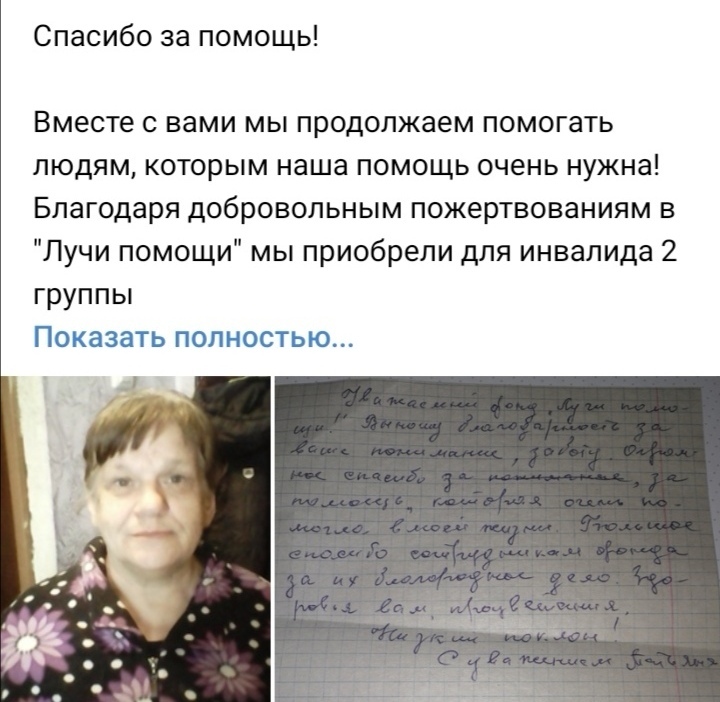 Спасибо за помощь!
Вместе с вами мы продолжаем помогать
людям, которым наша помощь очень нужна!
Благодаря добровольным пожертвованиям в
"Лучи помощи" мы приобрели для инвалида 2
группы
Показать полностью...
Уважаемый фонд „Лучи помо-
щи!" Выношу благодарность за
ваше понимание, заботу. Огром-
ное спасибо за понимание, за
помощь, которая очень по-
могла, в моей жизни. Большое
спасибо сотрудникам фонда
за их благородное дело. Здо-
ровья вам, процветания.
Низкий поклон!
С уважением Татьяна